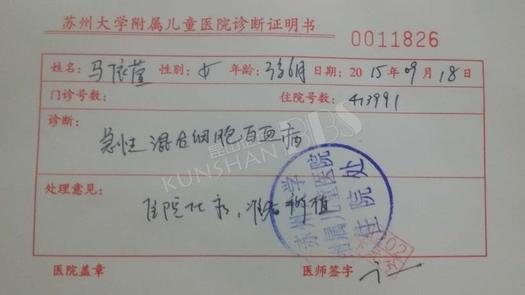 苏州大学附属儿童医院诊断证明书
0011826
姓名：马依萱 性别：女 年龄：3岁6月 日期：2015年09月18日
门诊号数： 住院号数：413991
诊断：
急性混合细胞白血病
KUNSHAN BBS
处理意见：
住院化疗，准备移植
苏州大学附属儿童医院
住院处
医院盖章 医师签字